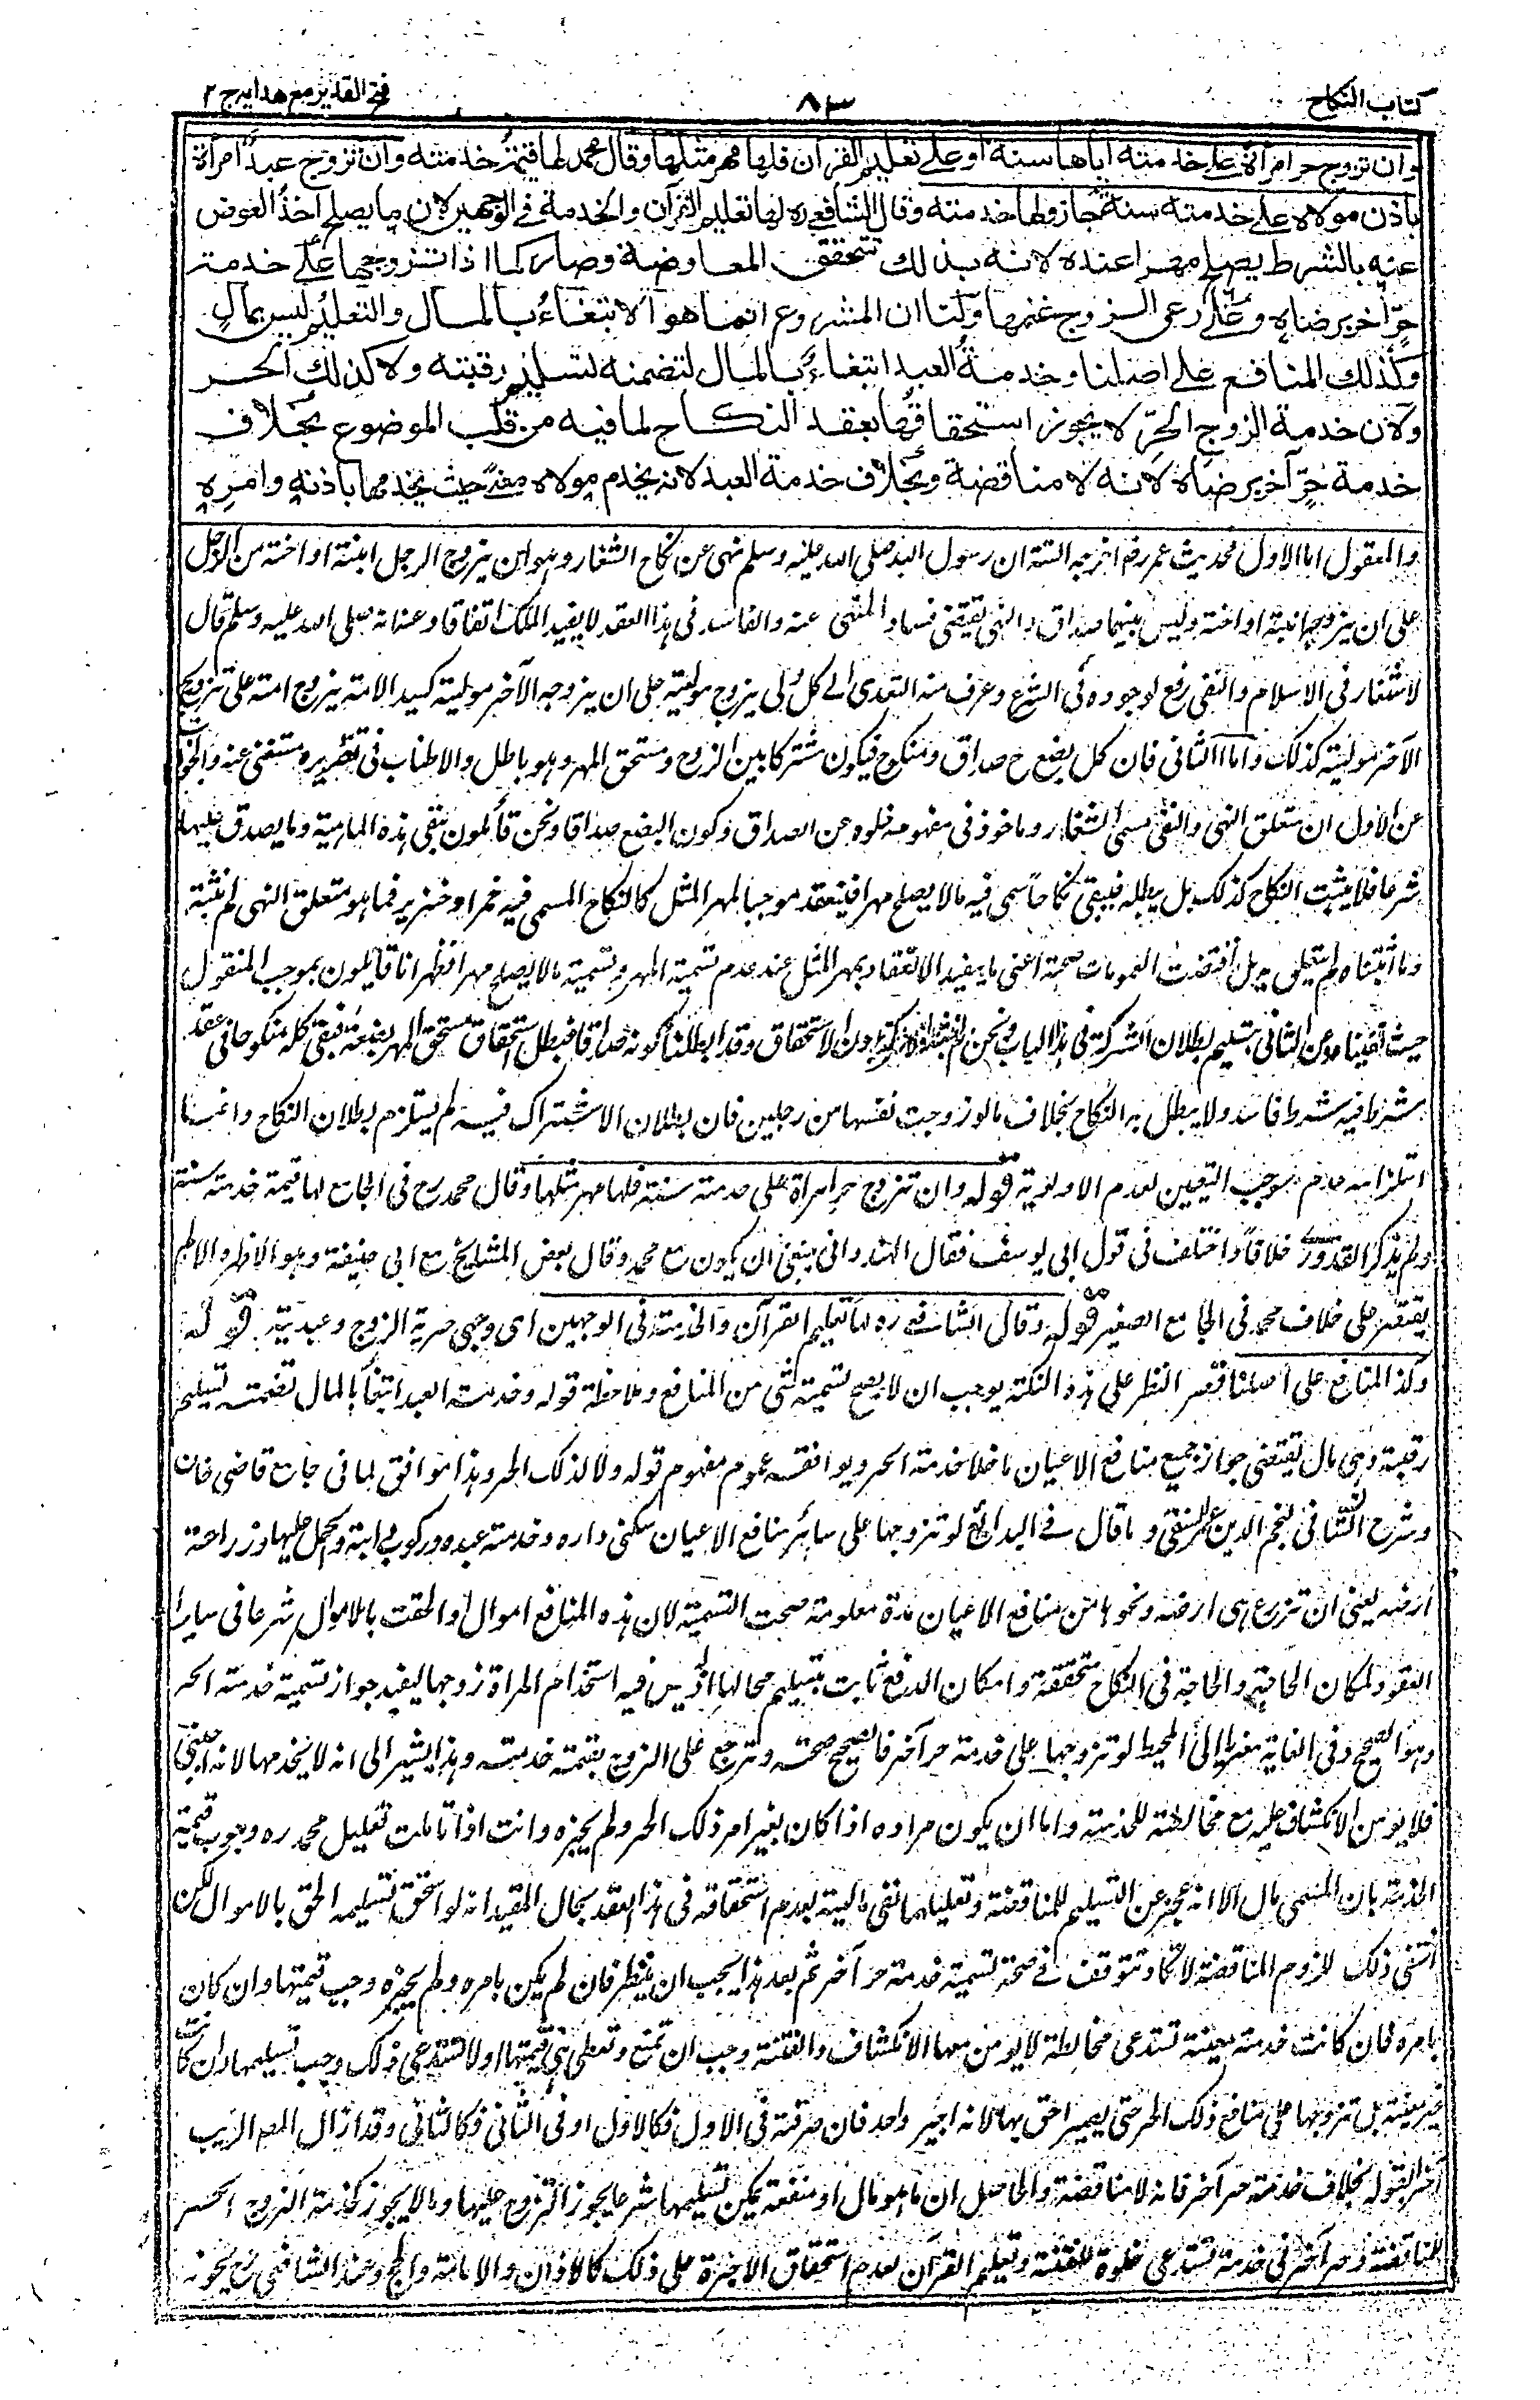 كتاب النكاح
٨٣
فتح القدير مع هدايه ج ٢
وان تزوج حر امرأة على خدمته اياها سنة او على تعليم القرآن فلها مهر مثلها وقال محمد لها قيمة خدمته وان تزوج عبد امرأة
باذن مولاه على خدمته سنة جاز ولها خدمته وقال الشافعي ره لها تعليم القرآن والخدمة في الوجهين لان ما يصلح اخذ العوض
عنه بالشرط يصلح مهرا عنده لانه بذلك تتحقق المعاوضة وصار كما اذا تزوجها على خدمة
حر آخر برضاه و على رعي الزوج غنمها ولنا ان المشروع انما هو الابتغاء بالمال والتعليم ليس بمال
وكذلك المنافع على اصلنا وخدمة العبد ابتغاء بالمال لتضمنه تسليم رقبته ولا كذلك الحر
ولان خدمة الزوج الحر لا يجوز استحقاقها بعقد النكاح لما فيه من قلب الموضوع بخلاف
خدمة حر آخر برضاه لانه لا مناقضة وبخلاف خدمة العبد لانه يخدم مولاه معنى حيث يخدمها باذنه وامره
والمعقول اما الاول فحديث عمر رض اخرجه الستة ان رسول الله صلى الله عليه وسلم نهى عن نكاح الشغار وهو ان يزوج الرجل ابنته او اخته من الرجل
على ان يزوجه ابنته او اخته وليس بينهما صداق والنهي يقتضي فساد المنهي عنه والفاسد في هذا العقد لا يفيد الملك اتفاقا وعنه انه صلى الله عليه وسلم قال
لا شغار في الاسلام والنفي رفع لوجوده في الشرع وعرف منه التعدي الى كل ولي يزوج موليته على ان يزوجه الآخر موليته كسيد الامة يزوج امته على تزويج
الآخر موليته كذلك واما الثاني فان كل بضع ح صداق ومنكوح فيكون مشتركا بين الزوج ومستحق المهر وهو باطل والاطناب في تقريره مستغنى عنه والجواب
عن الاول ان متعلق النهي والنفي مسمى الشغار وماخوذ في مفهومه خلوه عن الصداق وكون البضع صداقا ونحن قائلون بنفي هذه الماهية وما يصدق عليها
شرعا فلا يثبت النكاح كذلك بل يبطله فيبقى نكاحا سمي فيه ما لا يصلح مهرا فينعقد موجبا لمهر المثل كالنكاح المسمى فيه خمر او خنزير فما هو متعلق النهي لم نثبته
وما اثبتناه لم يتعلق به بل اقتضت العمومات صحته اعني ما يفيد الانعقاد بمهر المثل عند عدم تسمية المهر وتسمية ما لا يصلح مهرا فظهر انا قائلون بموجب المنقول
حيث نفيناه وعن الثاني بتسليم بطلان الشركة في هذا الباب ونحن لم نثبته اذ لا شركة بدون الاستحقاق وقد ابطلنا كونه صداقا فبطل استحقاق مستحق المهر بضعه فبقي كله منكوحا في عقد
شرط فيه شرط فاسد ولا يبطل به النكاح بخلاف ما لو زوجت نفسها من رجلين فان بطلان الاشتراك فيه لم يستلزم بطلان النكاح وانما
استلزامه عدم موجب التعيين لعدم الاولوية قوله وان تزوج حر امرأة على خدمته سنة فلها مهر مثلها وقال محمد رح في الجامع لها قيمة خدمته سنة
ولم يذكر القدوري خلافا واختلف في قول ابي يوسف فقال الهندواني ينبغي ان يكون مع محمد وقال بعض المشايخ مع ابي حنيفة وهو الاظهر والا لم
يقتصر على خلاف محمد في الجامع الصغير قوله وقال الشافعي ره لها تعليم القرآن والخدمة في الوجهين اي وجهي حرية الزوج وعبديته قوله
وكذا المنافع على اصلنا قصر النظر على هذه النكتة يوجب ان لا يصح تسمية شئ من المنافع وملاحظة قوله وخدمة العبد ابتغاء بالمال لتضمنه تسليم
رقبته وهي مال تقتضي جواز جميع منافع الاعيان ما خلا خدمة الحر ويوافقه عموم مفهوم قوله ولا كذلك الحر وهذا موافق لما في جامع قاضي خان
وشرح الشافي لنجم الدين عمر النسفي وما قال في البدائع لو تزوجها على سائر منافع الاعيان سكنى داره وخدمة عبده وركوب دابته والحمل عليها وزراعة
ارضه يعني ان تزرع هي ارضه ونحوها من منافع الاعيان مدة معلومة صحت التسمية لان هذه المنافع اموال او الحقت بالاموال شرعا في سائر
العقود لمكان الحاجة والحاجة في النكاح متحققة وامكان الدفع ثابت بتسليم محالها اذ ليس فيه استخدام المرأة زوجها ليفيد جواز تسمية خدمة الحر
وهو الصحيح وفي الغاية معزيا الى المحيط لو تزوجها على خدمة حر آخر فالصحيح صحته وترجع على الزوج بقيمة خدمته وهذا يشير الى انه لا يخدمها لانه اجنبي
فلا يؤمن الانكشاف عليه مع مخالطته للخدمة واما ان يكون مراده اذا كان بغير امر ذلك الحر ولم يجزه وانت اذا تاملت تعليل محمد ره وجوب قيمة
الخدمة بان المسمى مال الا انه عجز عن التسليم للمناقضة وتعليلهما نفي ماليته بعدم استحقاقه في هذا العقد بحال المفيد انه لو استحق تسليمه الحق بالاموال لكن
انتفى ذلك للزوم المناقضة لا تكاد تتوقف في صحة تسمية خدمة حر آخر ثم بعد هذا يجب ان ينظر فان لم يكن بامره ولم يجزه وجب قيمتها وان كان
بامره فان كانت خدمة معينة تستدعي مخالطة لا يؤمن معها الانكشاف والفتنة وجب ان تمنع وتعطى هي قيمتها او لا تستدعي ذلك وجب تسليمها وان كانت
غير معينة بل تزوجها على منافع ذلك الحر حتى يصير احق بها لانه اجير واحد فان صرفته في الاول فكالاول او في الثاني فكالثاني وقد ازال المص الريب
آخرا بقوله بخلاف خدمة حر آخر فانه لا مناقضة والحاصل ان ما هو مال او منفعة يمكن تسليمها شرعا يجوز التزوج عليها وما لا يجوز كخدمة الزوج الحر
للمناقضة وحر آخر في خدمة تستدعي خلوة للفتنة وتعليم القرآن لعدم استحقاق الاجرة على ذلك كالاذان والامامة والحج وعند الشافعي رح يجوز